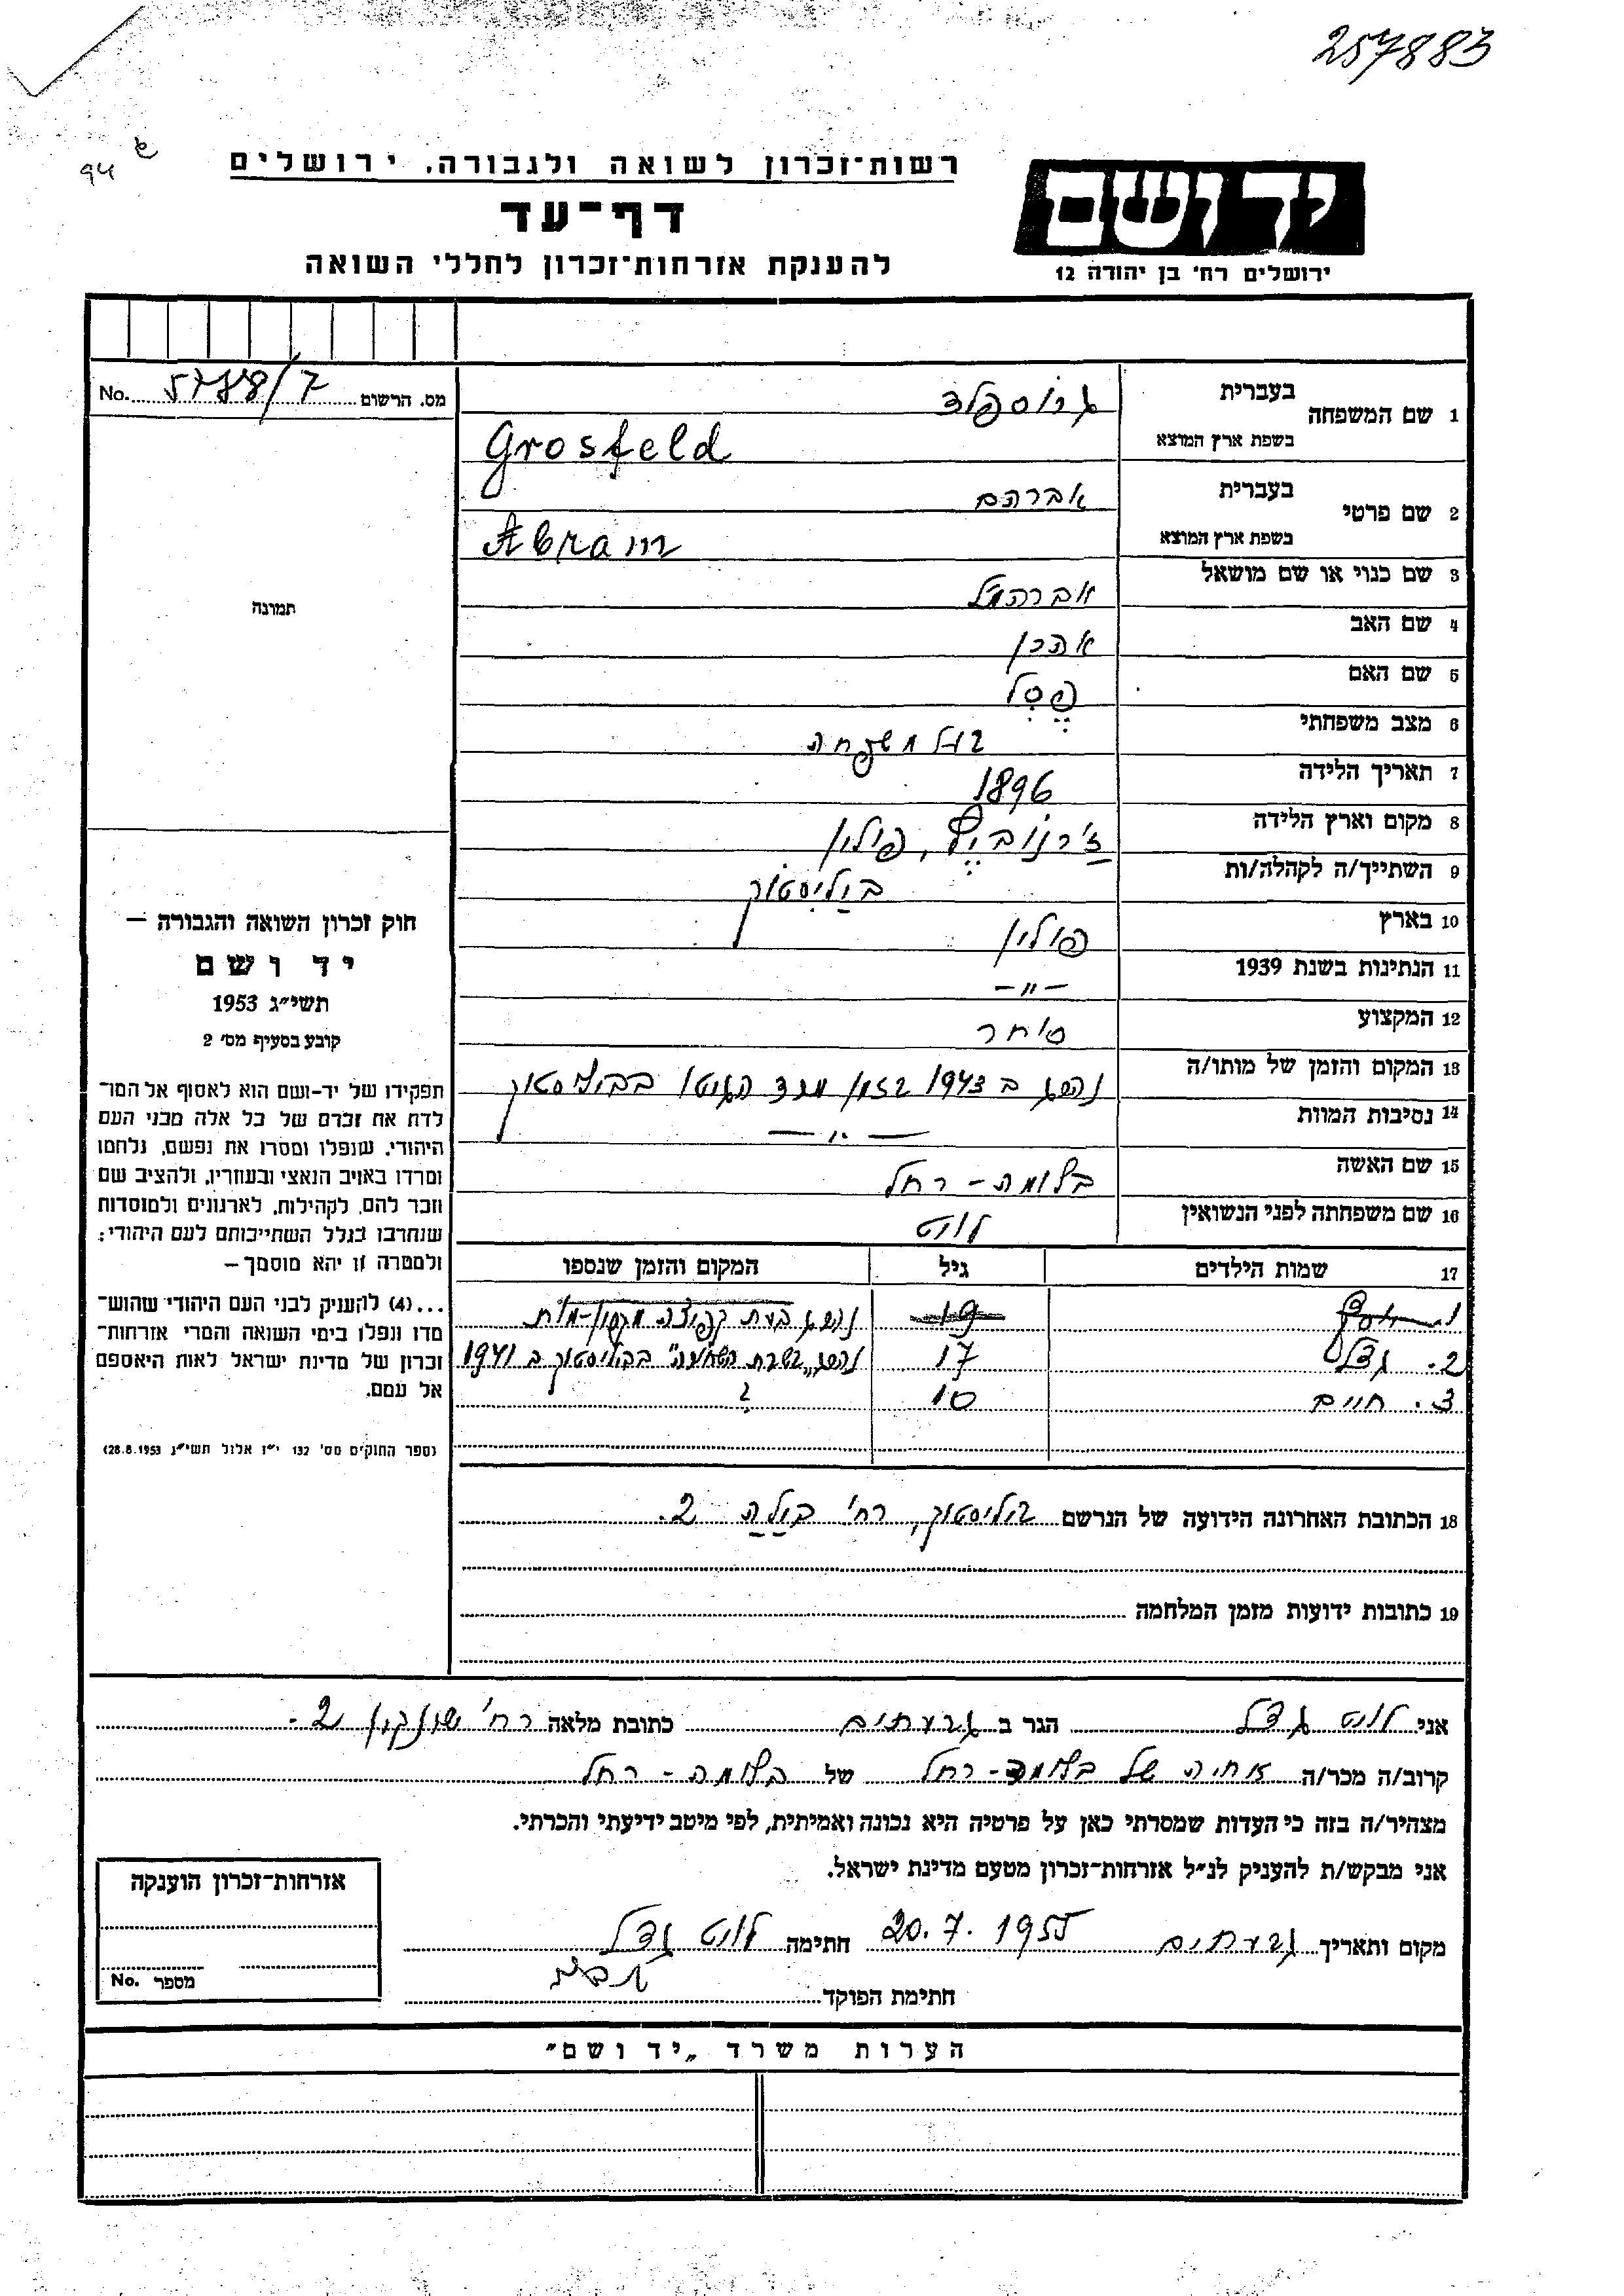 257883
94
רשות־זכרון לשואה ולגבורה, ירושלים
דף־עד
להענקת אזרחות־זכרון לחללי השואה
יד ושם
ירושלים רח' בן יהודה 12
מס. הרשום 5788/7 No.
1 שם המשפחה בעברית גרוספלד
בשפת ארץ המוצא Grosfeld
2 שם פרטי בעברית אברהם
בשפת ארץ המוצא Abram
3 שם כנוי או שם מושאל אברהמל
4 שם האב אהרן
5 שם האם פֶּסֶל
6 מצב משפחתי בעל משפחה
7 תאריך הלידה 1896
8 מקום וארץ הלידה פולין
9 השתייך/ה לקהלה/ות ביַליסטוֹק
10 בארץ פולין
11 הנתינות בשנת 1939 –״–
12 המקצוע סוחר
13 המקום והזמן של מותו/ה נהרג ב 1943 בזמן מרד הגיטו בביליסטוק
14 נסיבות המוות –״–
15 שם האשה בלומה - רחל
16 שם משפחתה לפני הנשואין לונט
17 שמות הילדים גיל המקום והזמן שנספו
19
2. גדל 17 נהרג בביליסטוק ב 1941
3. חיים 10 ?
18 הכתובת האחרונה הידועה של הנרשם ביליסטוק, רח' 2.
19 כתובות ידועות מזמן המלחמה
תמונה
חוק זכרון השואה והגבורה –
יד ושם
תשי״ג 1953
קובע בסעיף מס' 2
תפקידו של יד-ושם הוא לאסוף אל המו־
לדת את זכרם של כל אלה מבני העם
היהודי, שנפלו ומסרו את נפשם, נלחמו
ומרדו באויב הנאצי ובעוזריו, ולהציב שם
וזכר להם, לקהילות, לארגונים ולמוסדות
שנחרבו בגלל השתייכותם לעם היהודי;
ולמטרה זו יהא מוסמך –
...(4) להעניק לבני העם היהודי שהוש־
מדו ונפלו בימי השואה והמרי אזרחות־
זכרון של מדינת ישראל לאות היאספם
אל עמם.
(ספר החוקים מס' 132 י״ז אלול תשי״ג 28.8.1953)
אני לונט גדל הגר ב גבעתיים כתובת מלאה רח' שינקין 2.
קרוב/ה מכר/ה אחיה של בלומה - רחל של בלומה - רחל
מצהיר/ה בזה כי העדות שמסרתי כאן על פרטיה היא נכונה ואמיתית, לפי מיטב ידיעתי והכרתי.
אני מבקש/ת להעניק לנ״ל אזרחות־זכרון מטעם מדינת ישראל.
מקום ותאריך גבעתיים 20.7.1955 חתימה לונט גדל
חתימת הפוקד
אזרחות־זכרון הוענקה
מספר No.
הערות משרד „יד ושם״